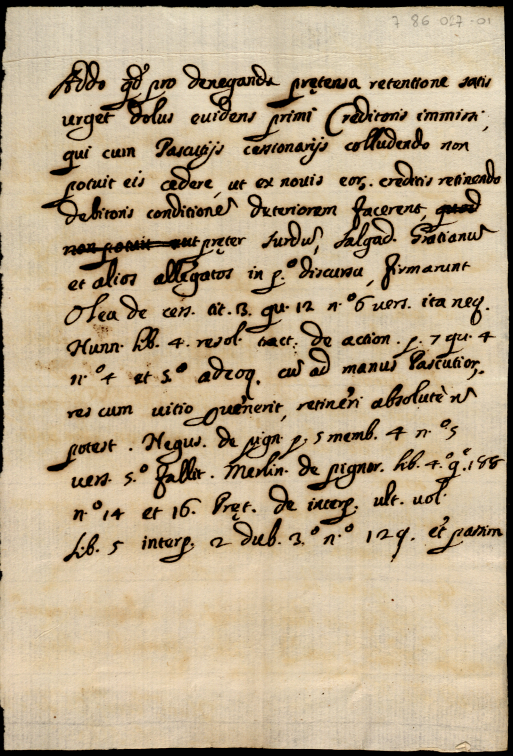 7 86 017-01
Addo qd̛ pro deneganda pr̨etensa retentione satis
urget dolus euidens primi Creditoris immissi;
qui cum Pascutijs cessionarijs colludendo non
potuit eis cedere, ut ex nouis eor̨. creditis retinendo
debitoris conditione᷒ deteriorem facerent, quod
non potuit aut pręter Surdu᷒, Salgad. Gratianu᷒
et alios allegatos in p.º discursu, firmarunt
Olea de cess. tit. 3. qu. 12 n.º 6 vers. ita neq.
Hunn. lib. 4. resol. tract. de action. p. 7 qu. 4
n.º 4 et 5.º adeoq. cu᷒ ad manus Pascutior̨.
res cum vitio peruenerit, retineri absolutè n᷒
potest. Negus. de pign. p. 5 memb. 4 n.º 5
vers. 5.º fallit. Merlin. de pignor. lib. 4.º q. 188
n.º 14 et 16. Pręt. de interp. ult. vol.
lib. 5 interp. 2 dub. 3.º n.º 129. et passim